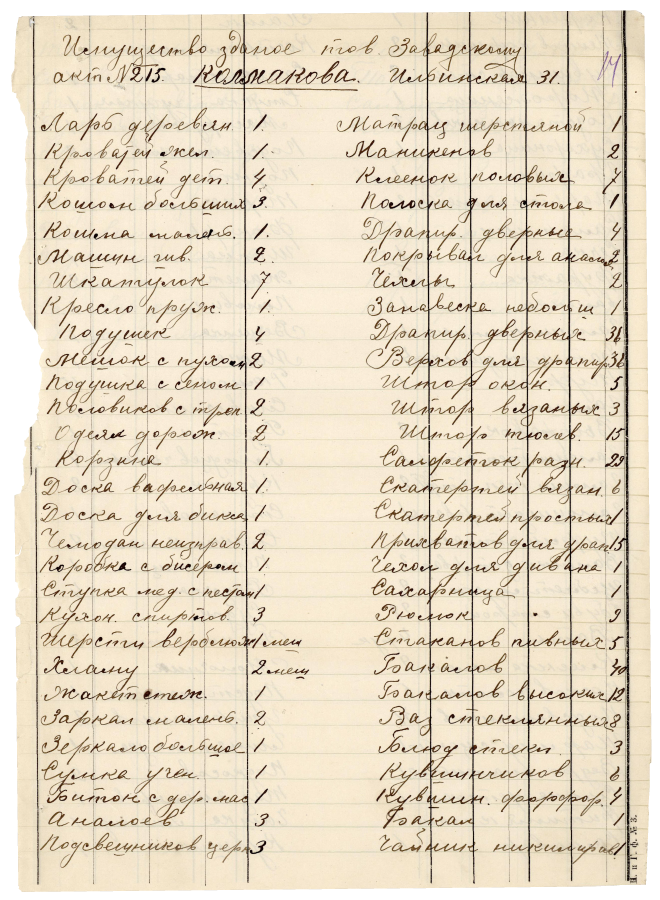 Имущество зданое тов. Завадскому
акт № 215. Колмакова. Ильинская 31.
14
Ларь деревян. 1.
Кроватей жел. 1.
Кроватей дет. 4
Кошом больших 3.
Кошма малень. 1.
Машин шв. 2.
Шкатулок 7
Кресло пруж. 1.
Подушек 4
Мешок с пухом 2
Подушка с сеном 1
Половиков с троп. 2
Одеял дорож. 2
Корзина 1.
Доска вафельная 1.
Доска для бикса 1
Чемодан неизправ. 2
Коробка с бисером 1
Ступка мед. с пестом 1
Кухон. спиртов. 3
Шерсти верблюж 1 меш
Хламу 2 меш
Жакт стеж. 1
Заркал малень. 2
Зеркало большое 1
Сумка учен. 1
Битон с дер. мас 1
Аналоев 3
Подсвещников церк 3
Матрац шерстяной 1
Маникенов 2
Клеенок половых 7
Полоска для стола 1
Драпир. дверные 4
Покрывал для аналоя 2
Чехлы 2
Занавеска небольш 1
Драпир. дверных 36
Верхов для драпир 36
Штор окон. 5
Штор вязаных 3
Штор тюлев. 15
Салфеток разн. 29
Скатертей вязан. 6
Скатертей простых 1
Прихватов для драп 15
Чехол для дивана 1
Сахарница 1
Рюмок 9
Стаканов пивных 5
Бакалов 40
Бакалов высоких 12
Ваз стеклянных 8
Блюд стекл. 3
Кувшинчиков 6
Кувшин. форфор. 4
Бакал 1
Чайник никилиров. 1